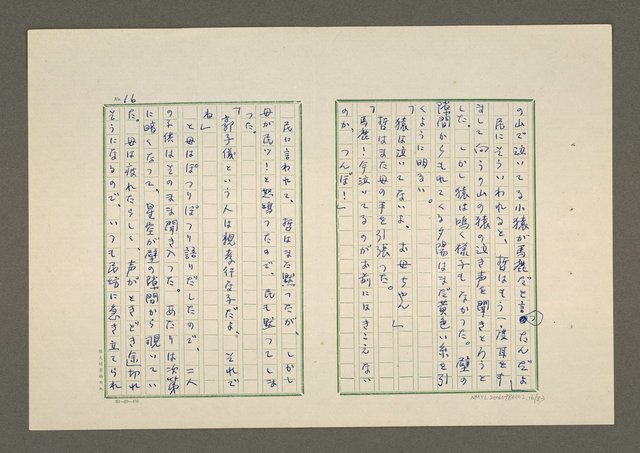 の山で泣いてる小猿が馬鹿だと言ったんだよ」
民にそういわれると、哲はもう一度耳をす
まして向うの山の猿の泣き声を聞きとろうと
した。しかし猿は鳴く様子もなかった。壁の
隙間からもれてくる夕陽はまだ黄色い糸を引
くように明るい。
「猿は泣いてないよ、お母ちゃん」
哲はまた母の手を引張った。
「馬鹿！今泣いてるのがお前にはきこえない
のか、つんぼ！」
民に言われて、哲はまた黙ったが、しかし
母が民ッ！と怒鳴ったので、民も黙ってしま
った。
「郭子儀という人は親孝行な子だよ、それで
ね」
と母はぽつりぽつり語りだしたので、二人
の子供はそのまま聞き入った。あたりは次第
に暗くなって、星空が壁の隙間から覗いてい
た。母は疲れたらしく、声がときどき途切れ
そうになるので、いつも民坊に急き立てられ
No. 16
NMTL20060980002_16/83